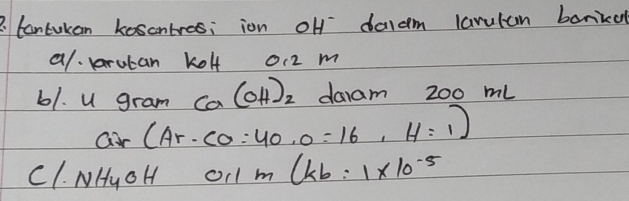 2. tantukan kosentrasi ion OH⁻ dalam larutan barikut
a/. larutan KOH 0,2 m
b/. 4 gram Ca(OH)₂ dalam 200 mL
air (Ar. Ca = 40, O = 16, H = 1)
C/. NH4OH 0,1 m (kb : 1 x 10⁻⁵